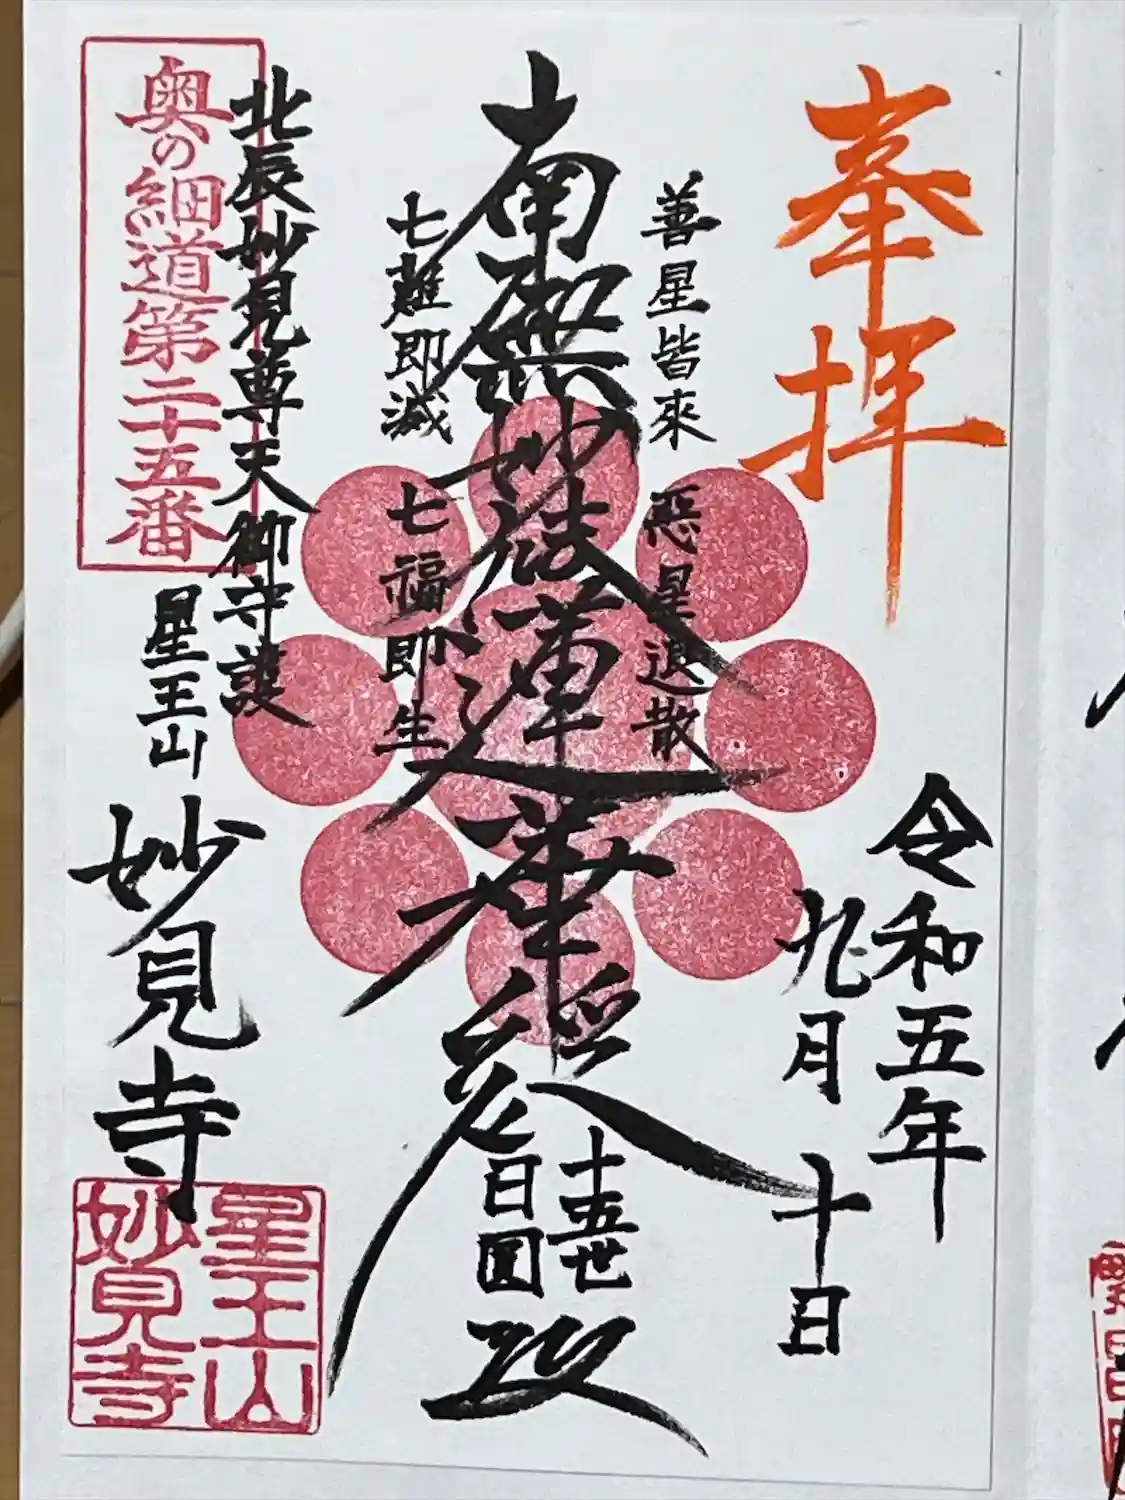 奉拝
令和五年
九月十日
善星皆來 惡星退散
南無妙法蓮華経
七難即滅 七福即生
十五世
日圓
北辰妙見尊天御守護
奥の細道第二十五番
星王山
妙見寺
星王山
妙見寺